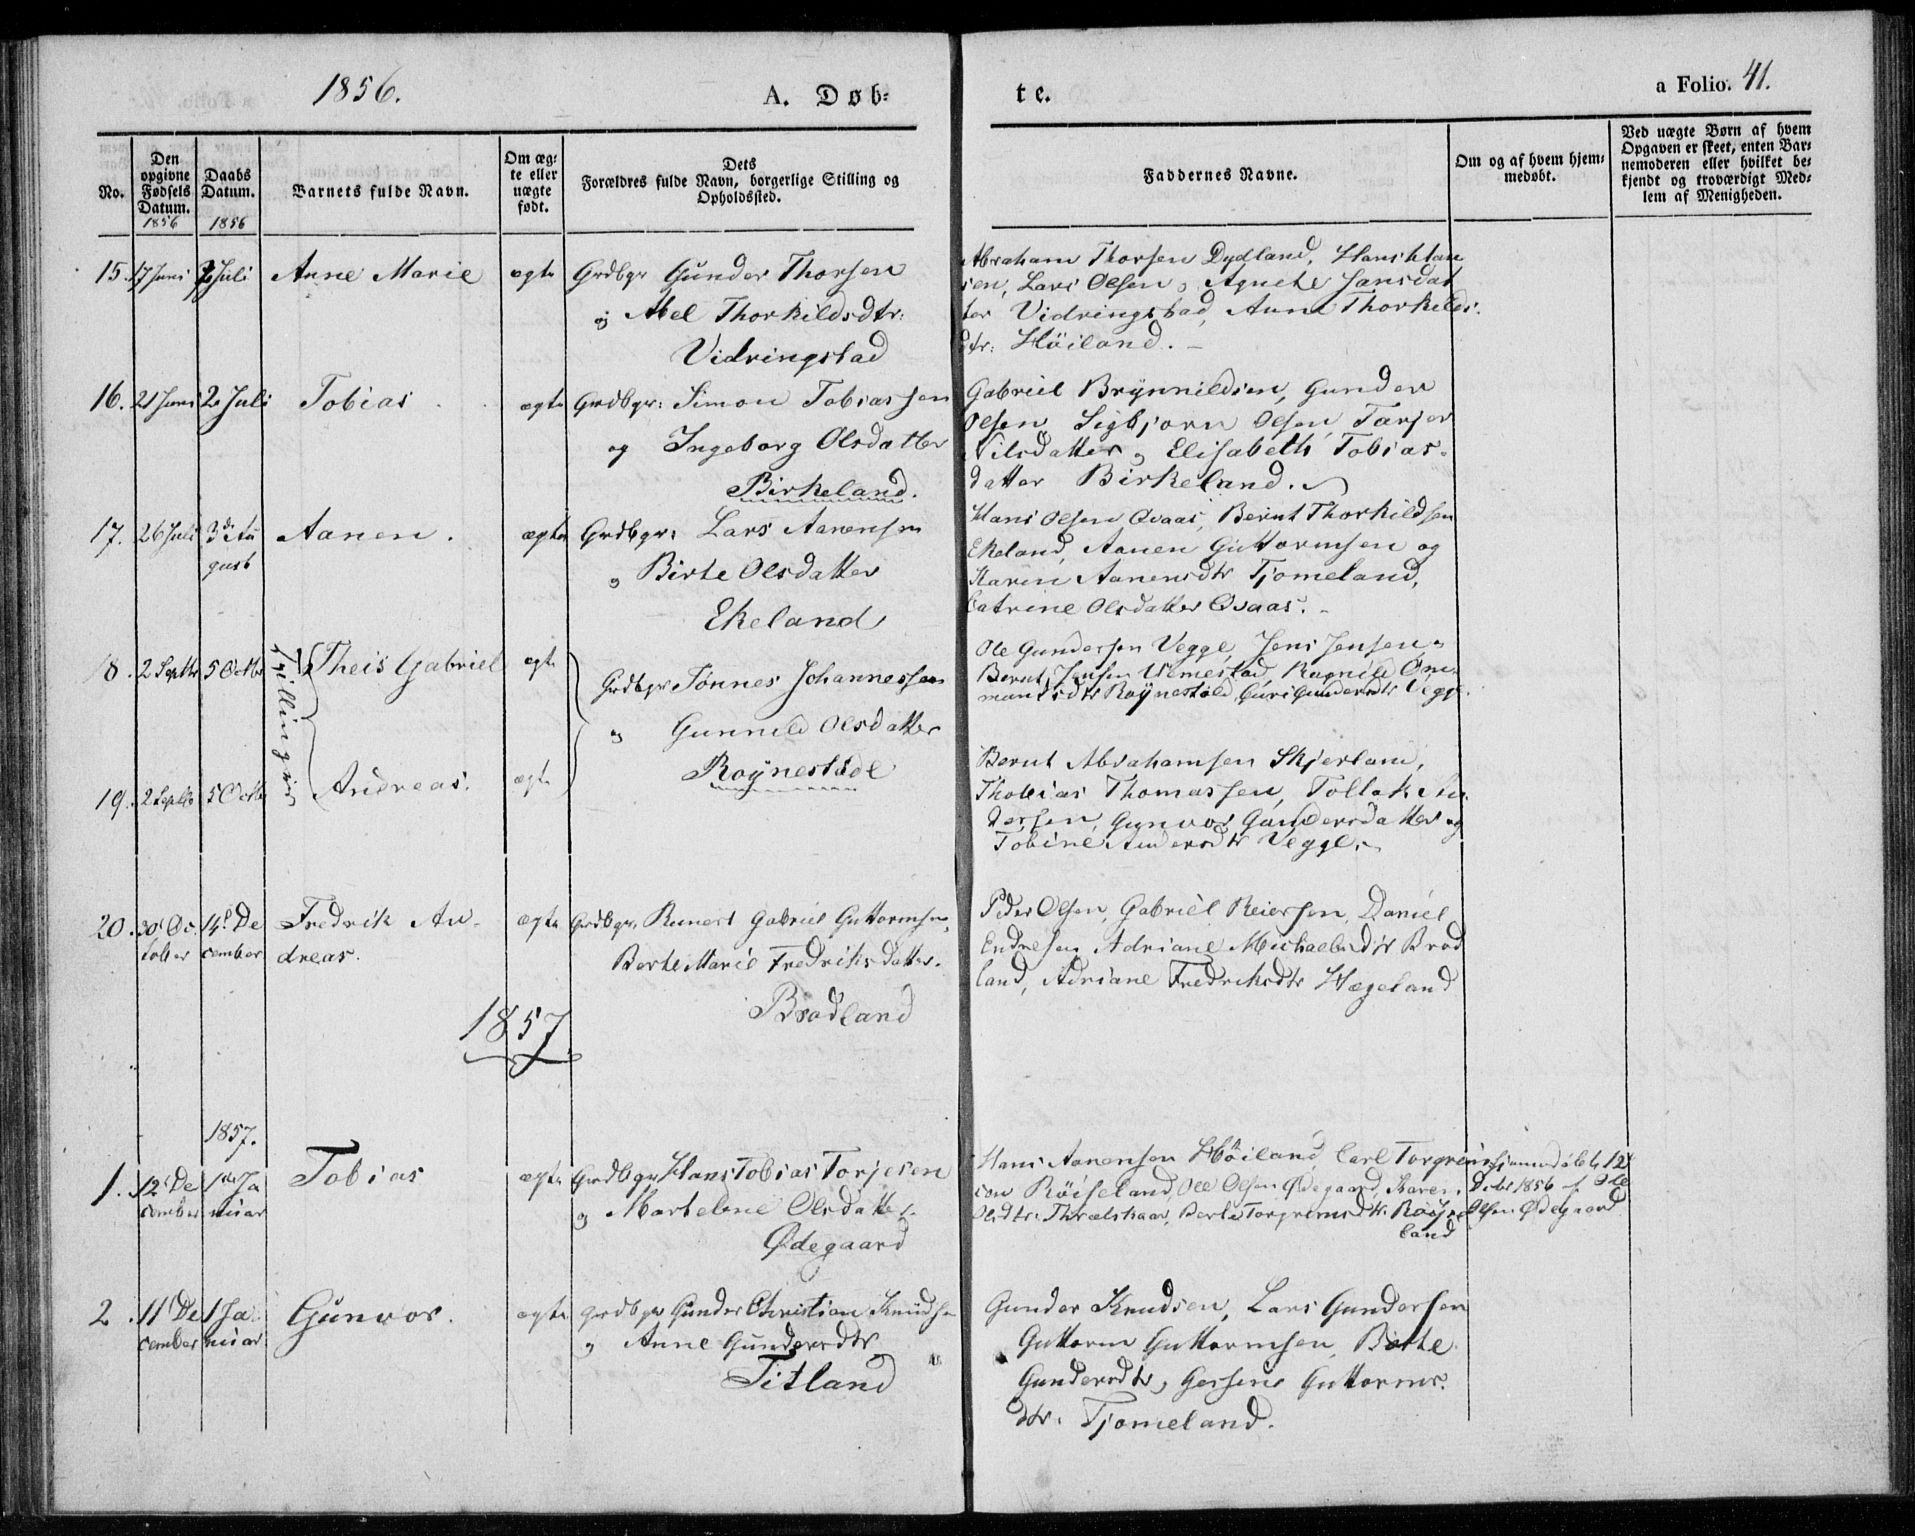 1856.
A. Døb-
te.
a Folio. 41.
No.
Den
opgivne
Fødsels
Datum.
1856
Daabs
Datum.
1856
Barnets fulde Navn.
Om æg-
te eller
uægte
født.
Dets
Forældres fulde Navn, borgerlige Stilling og
Opholdssted.
Faddernes Navne.
Om og af hvem hjem-
medøbt.
Ved uægte Børn af hvem
Opgaven er skeet, enten Bar-
nemoderen eller hvilket be-
kjendt og troværdigt Med-
lem af Menigheden.
15. 17 Juni 2 Juli Anne Marie ægte Grdbgr Gunder Thorsen
og Abel Thorkildsdtr:
Vidringstad
Abraham Thorsen Dydland, Hans Han
sen, Lars Olsen, Agnete Jansdat
ter Vidringstad, Anne Thorkilds
dtr: Höiland. –
16. 21 Juni 2 Juli Tobias ægte Grdbgr: Simon Tobiassen
og Ingeborg Olsdatter
Birkeland.
Gabriel Brynnildsen, Gunder
Olsen, Sigbjorn Olsen, Tarjer
Nilsdatter og Elisabeth Tobias-
datter Birkeland.
17. 26 Juli 3d Au
gust
Aanen. ægte Grdbgr: Lars Aanensen
og Birte Olsdatter
Ekeland
Hans Olsen Qvaas, Bernt Thorkildsen
Ekeland, Aanen Guttormsen og
Karen Aanensdtr Tjomeland,
Catrine Olsdatter Qvaas. –
18. 2 Septbr 5 Octbr Tvillinger Theis Gabriel ægte
Grdbgr Tønnes Johannessen
og Gunnild Olsdatter
Roÿnestöde
Ole Gundersen Vegge, Jens Jensen,
Bernt Jensen Usmestad, Ragnild
Roÿnestöde, Guri Gundersdtr Vegge.
19. 2 Septbr 5 Octbr Andreas. ægte
Bernt Abrahamsen Skjerland,
Thobias Thomassen, Tollak An
dersen, Gunvor Gundersdatter og
Tobine Andersdtr Vegge. –
20. 30 Oc
tober
14d De
cember
Fredrik An-
dreas.
ægte Grdbgr. Reinert Gabriel Guttormsen,
Berte Marie Fredriksdatter.
Brodland
Peder Olsen, Gabriel Reiersen, Daniel
Endresen, Adriane Michaelsdtr Brod
land, Adriane Fredriksdtr Hægeland
1857
1857.
1. 12 De
cember
1ste Ja
nuar
Tobias ægte Grdbgr Hans Tobias Torjesen
og Martelene Olsdatter.
Ødegaard
Hans Aanensen Höiland, Carl Torgrem
sen Röiseland, Ole Olsen Ødegaard, Karen
Olsdtr: Thrælskaar, Berte Torgremsdtr: Röise
land
Hjemmedöbt 12
Decbr 1856 af Ole
Olsen Ødegaard
2. 11 De
cember
1 Ja
nuar
Gunvor. ægte Grdbgr Gunder Christian Knudsen
og Anne Gundersdtr
Titland
Gunder Knudsen, Lars Gundersen
Guttorm Guttormsen, Berte
Gundersdtr, Gersine Guttorms
dtr. Tjomeland.